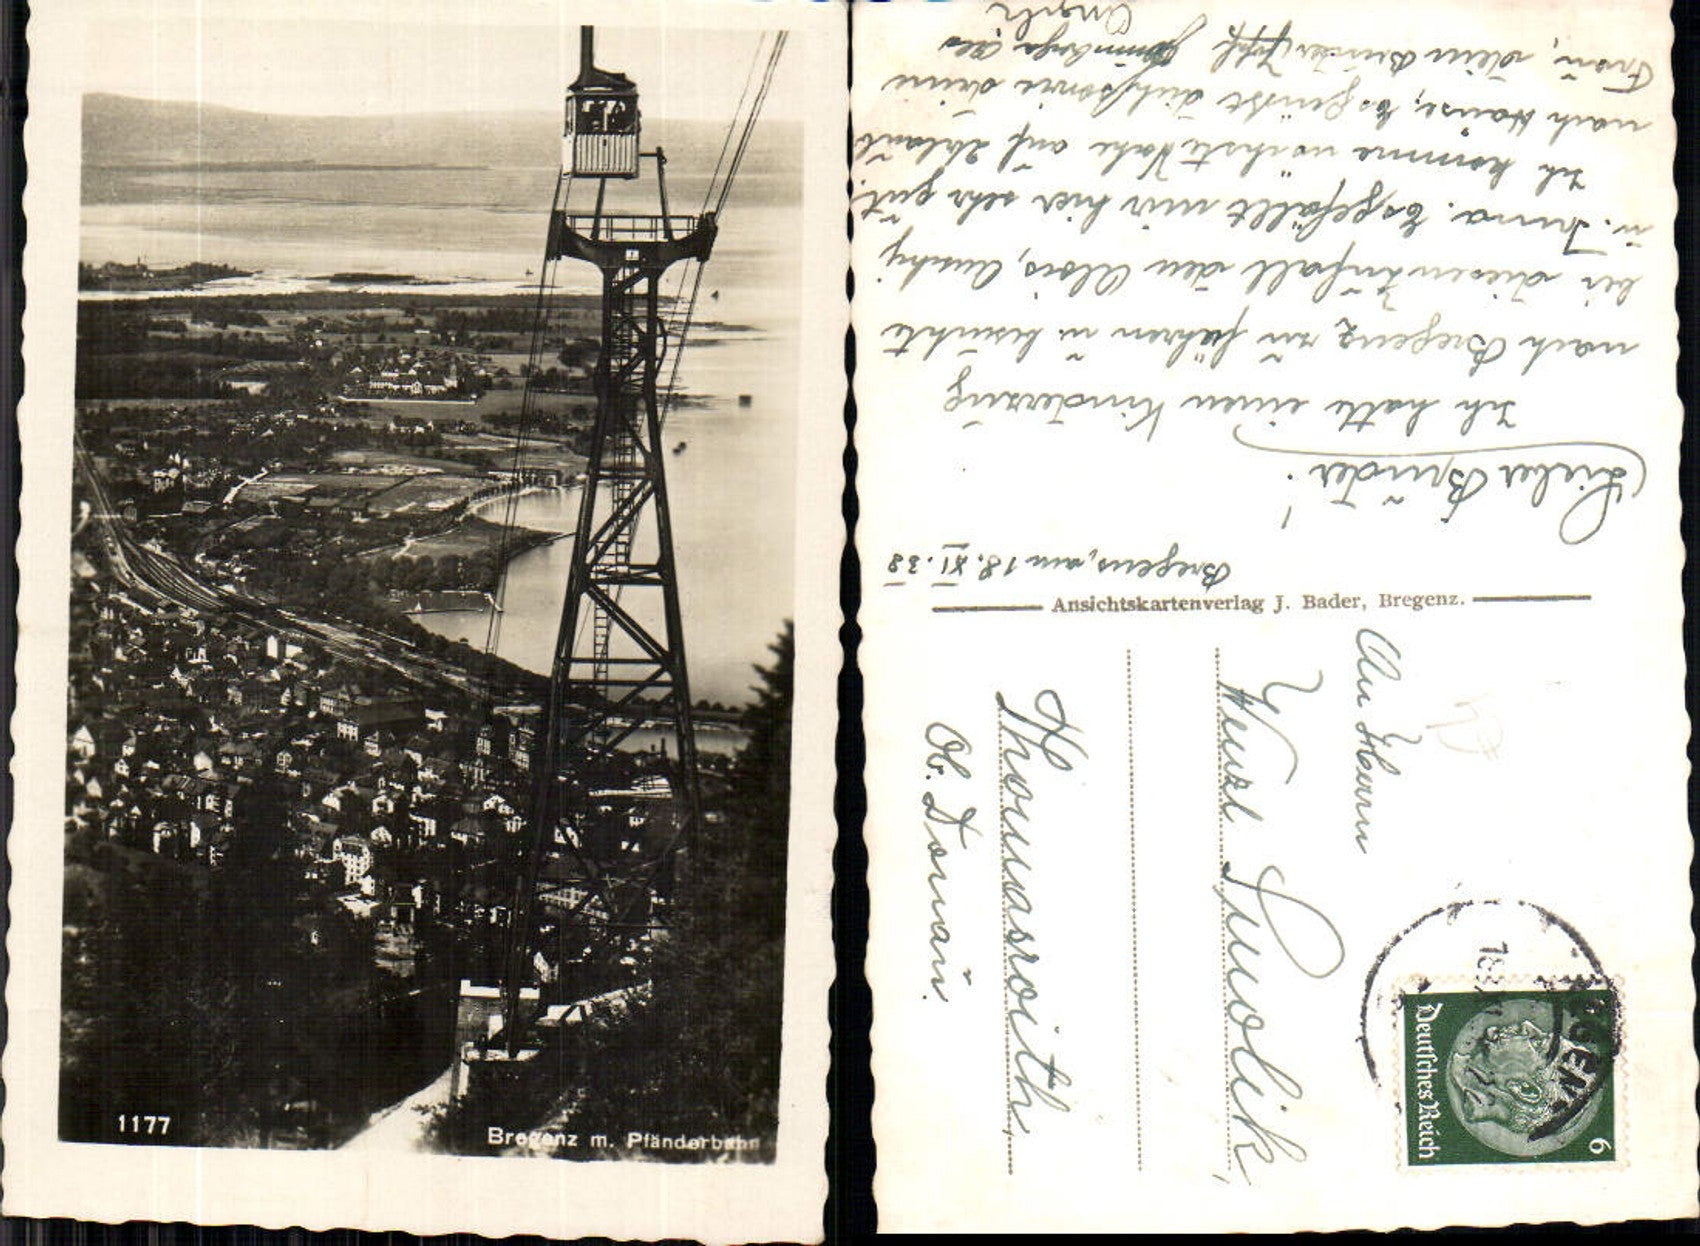 1177
Bregenz m. Pfänderbahn
Bregenz, am 18. XI. 38
Lieber Bruder!
Ich hatte einen Kinderzug
nach Bregenz zu führen u. besuchte
bei diesem Anlaß den Alois,
u. Anna. Es gefällt mir hier sehr gut.
Ich komme nächste Woche auf Urlaub
nach Hause, es grüßt dich sowie deine
Frau, dein Bruder
Ansichtskartenverlag J. Bader, Bregenz.
An Herrn
Karl Smolik,
Thomasroith,
Ob. Donau.
Deutsches Reich
6